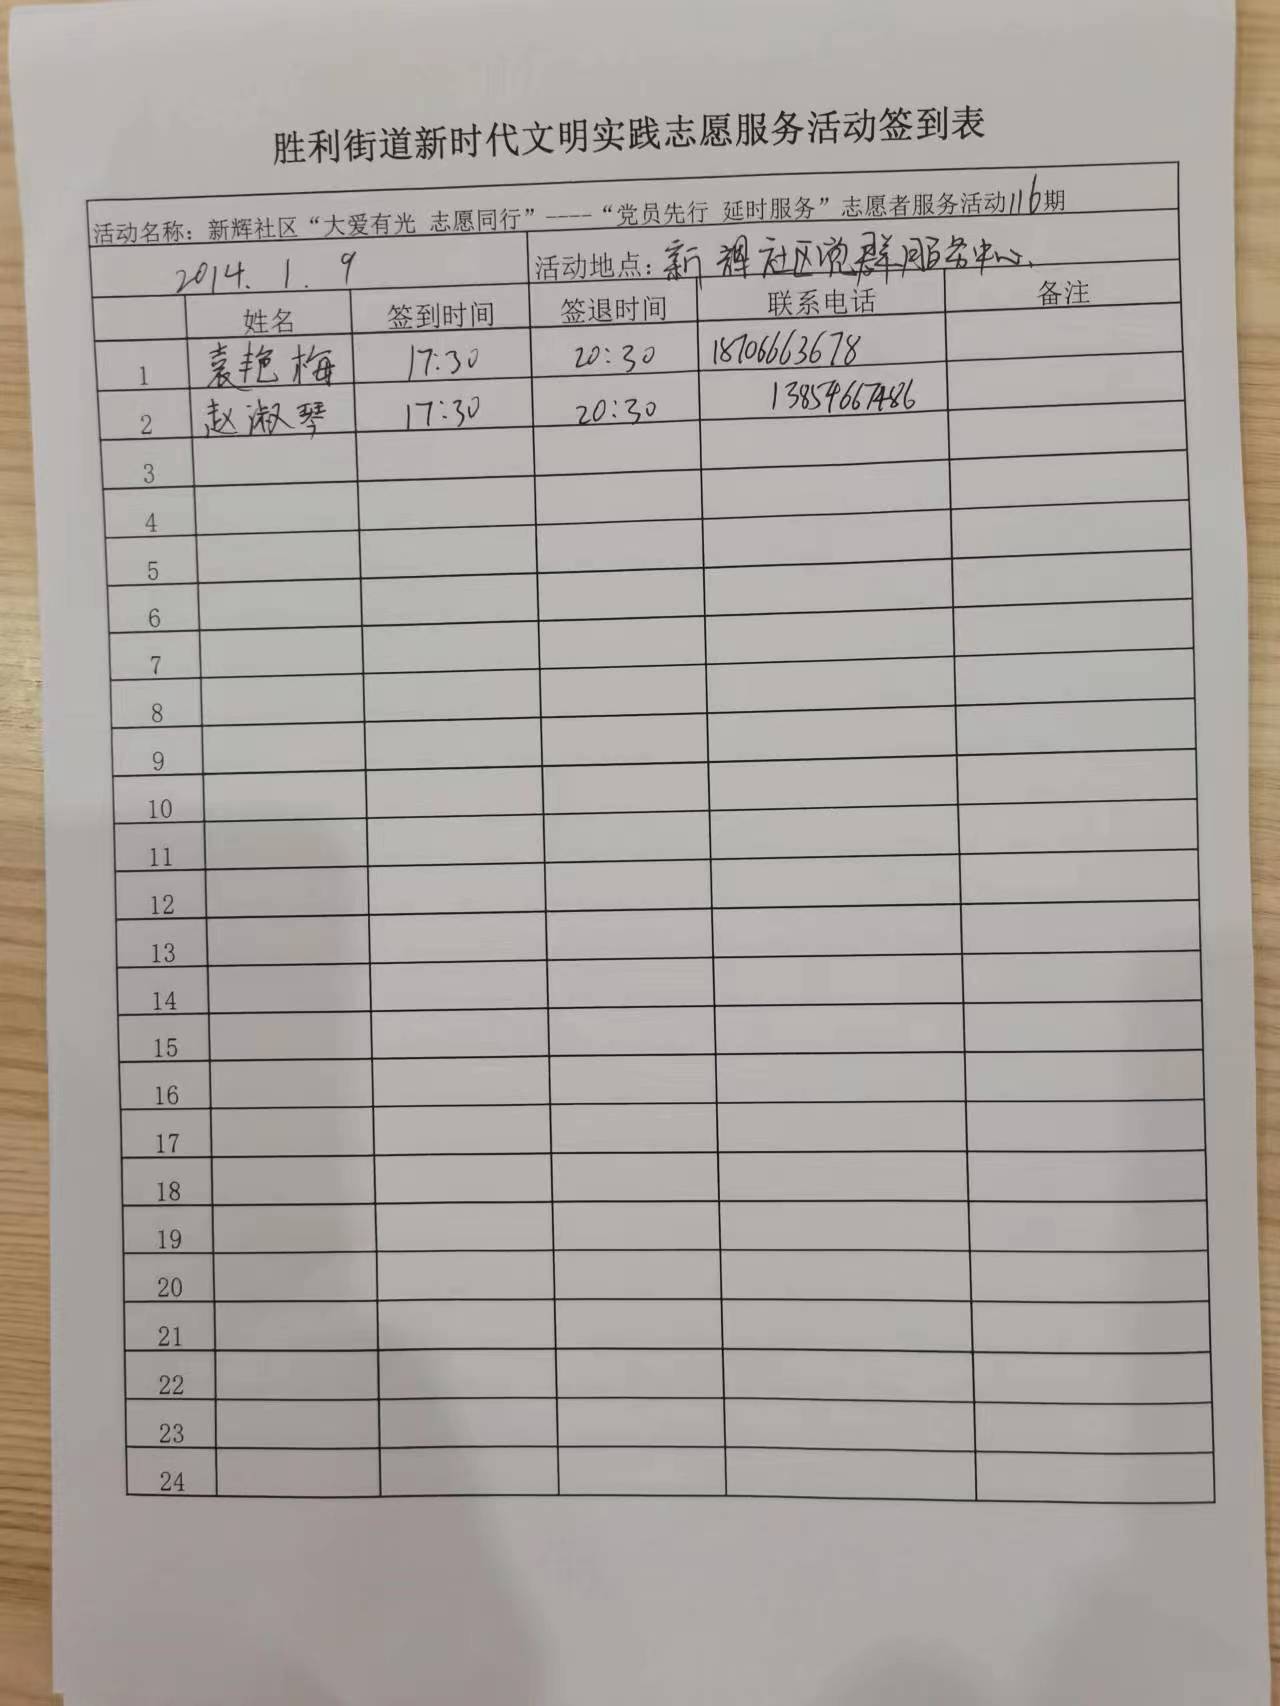 胜利街道新时代文明实践志愿服务活动签到表
活动名称：新辉社区“大爱有光 志愿同行”----“党员先行 延时服务”志愿者服务活动116期
2014.1.9 活动地点：新辉社区党群服务中心.
姓名 签到时间 签退时间 联系电话 备注
1 袁艳梅 17:30 20:30 18706663678
2 赵淑琴 17:30 20:30 13854667486
3
4
5
6
7
8
9
10
11
12
13
14
15
16
17
18
19
20
21
22
23
24